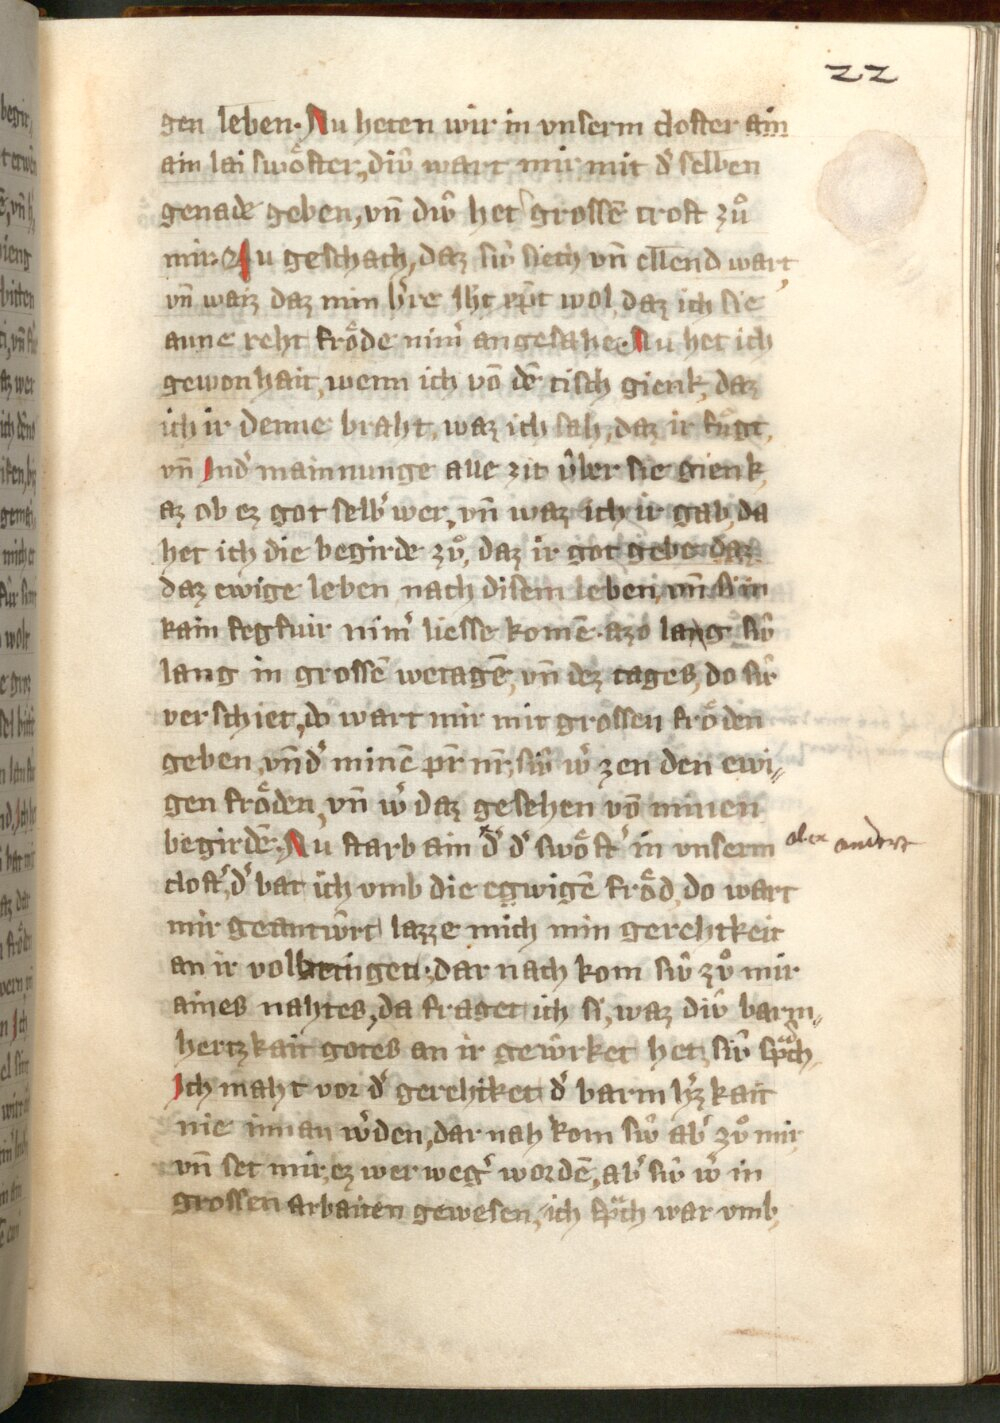 22
gen leben. Nu heten wir in vnserm closter ain
ain lai swöster, diu̔ wart mir mit d̓ selben
genade geben, vn̄ diw̔ het grossē trost zuͦ
mir. Nu geschach, daz siw̔ siech vn̄ ellend wart,
vn̄ waiz daz min h̓re ih̄c xp̄c wol, daz ich sie
aune reht fröde nim̓ angesahe. Nu het ich
gewonhait, wenn ich vō dē tisch gienk, daz
ich ir denne braht, waz ich sah, daz ir fuͦgt,
vn̄ ind̓ mainnunge alle zit u̔ber sie gienk,
az ob ez got selb̓ wer, vn̄ waz ich ir gab, da
het ich die begirde zuͦ, daz ir got gebe daz
daz ewige leben nach disem leben, vn̄ si in
kain fegfuir nim̓ liesse komē. azo lang siw̔
lang in grossē wetagē, vn̄ dez tages, do siw̔
verschiet, do wart mir mit grossen fröden
geben, vn̄d̓ minē pr̄ nr̄, siw̔ w̓ zen den ewi-
gen fröden, vn̄ w̓ daz gesehen vō minen
begirdē. Nu starb ain d̓ d̓ swöst̓ in vnserm
alex andere
clost̓, d̓ bat ich vmb die egwigē fröd, do wart
mir geantw̔rt lazze mich min gerehtkeit
an ir volbringen. dar nach kom siw̔ zuͦ mir
aines nahtes, da fraget ich si, waz diu̔ barm-
hertzkait gotes an ir gew̔rket het, siw̔ spͣch,
Ich maht vor d̓ gerehtket d̓ barmh̓zkait
nie innan w̓den, dar nah kom siw̔ ab̓ zuͦ mir,
vn̄ set mir, ez wer weg̓ wordē, ab̓ siw̔ w̓ in
grossen arbaiten gewesen, ich spͣch war vmb,